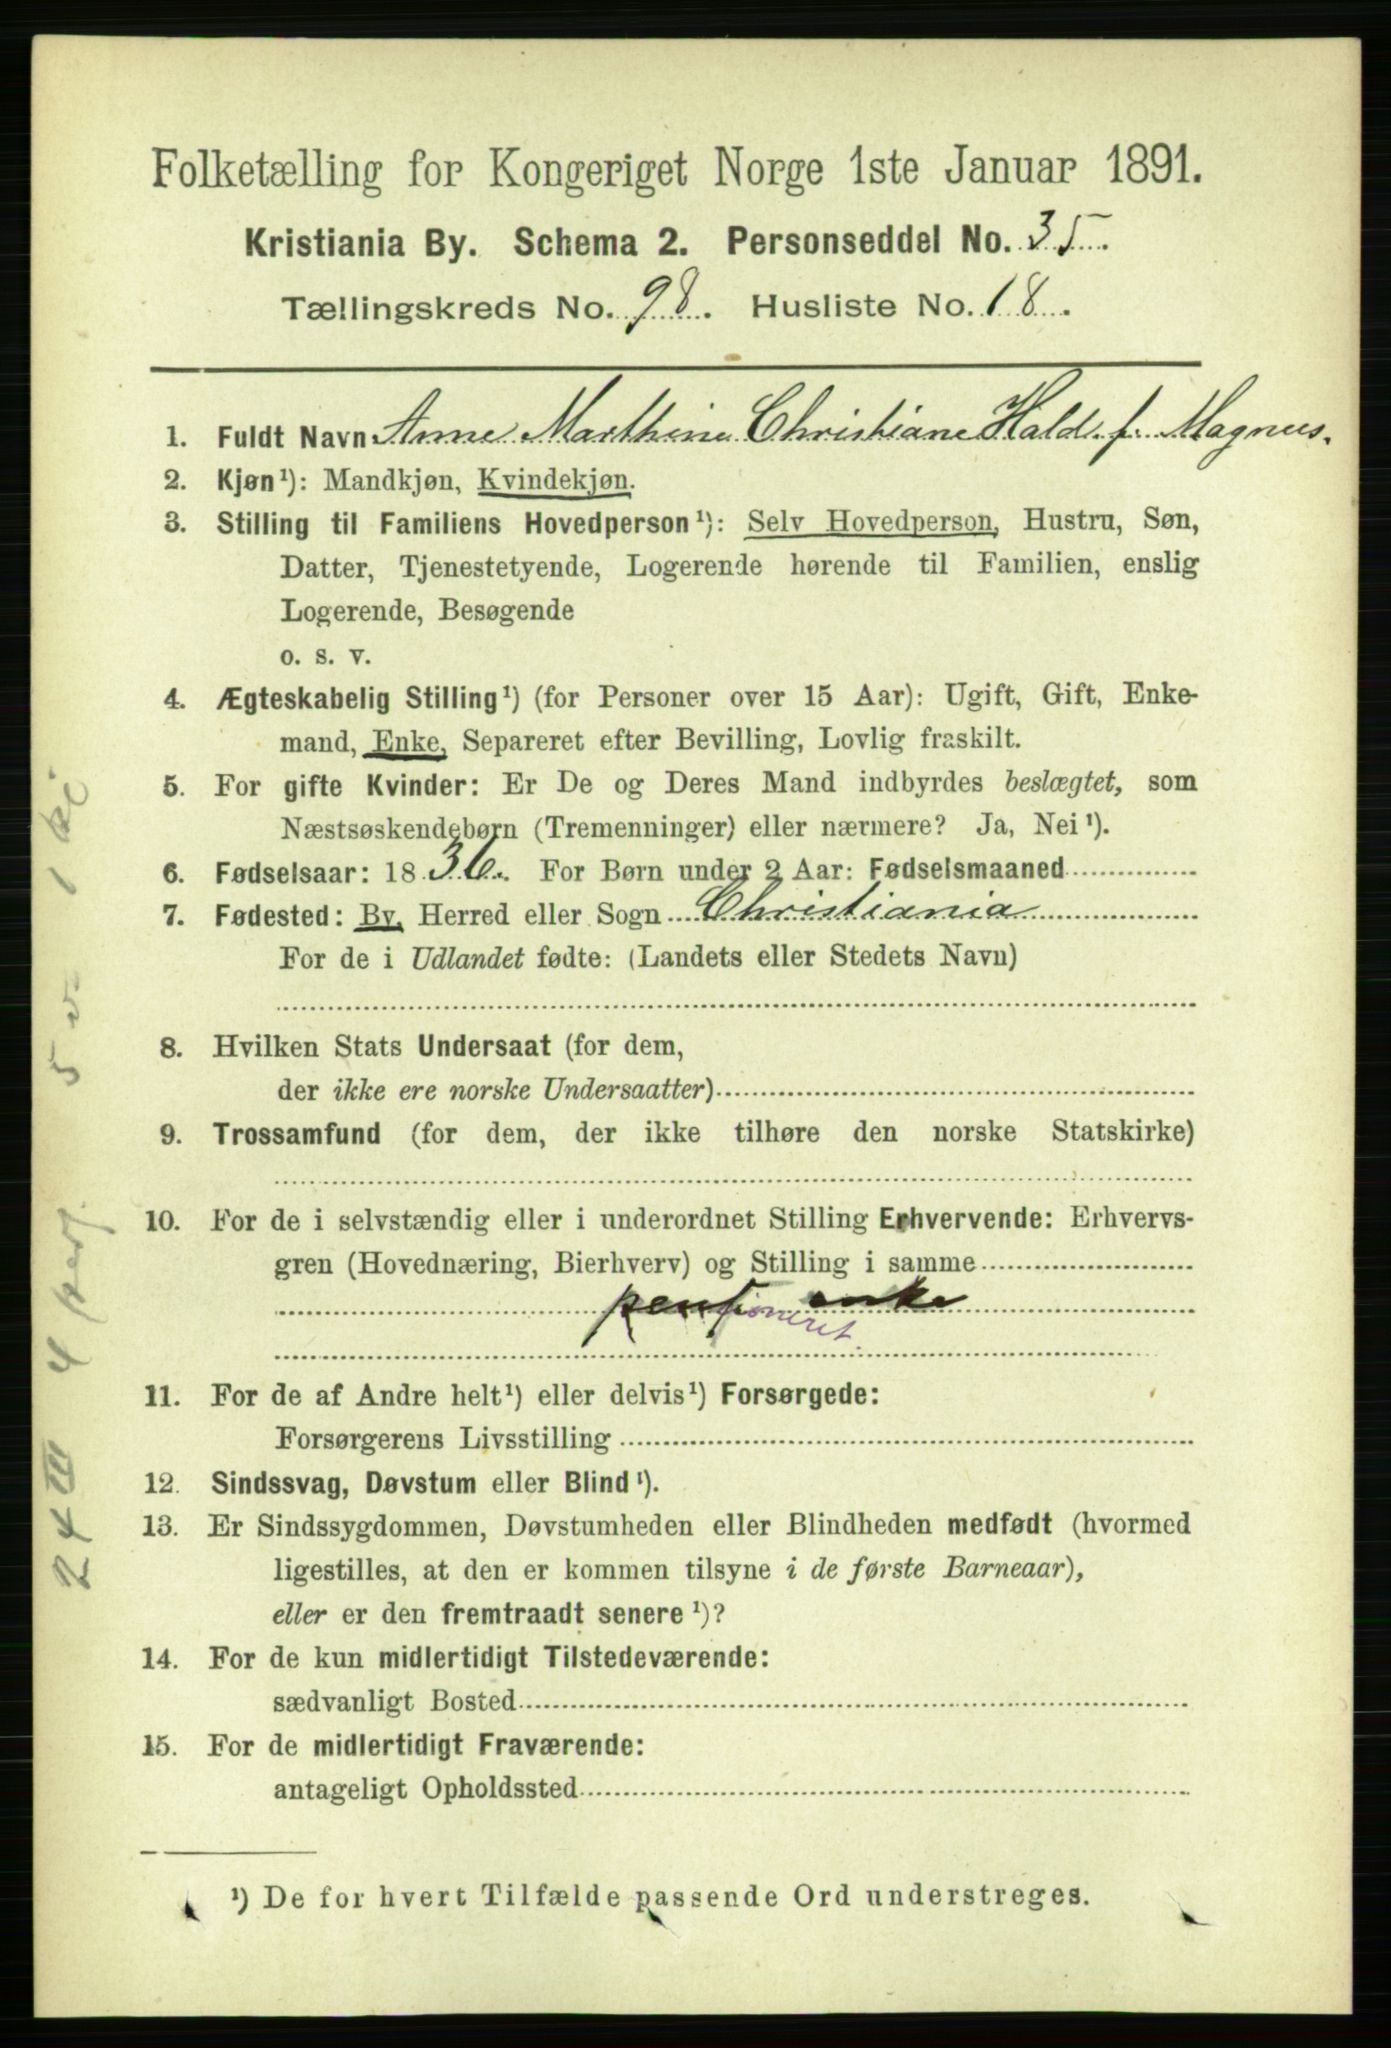 Folketælling for Kongeriget Norge 1ste Januar 1891.
Kristiania By. Schema 2. Personseddel No. 35.
Tællingskreds No. 98. Husliste No. 18.
1. Fuldt Navn Anne Marthine Christiane Hald f. Magnus.
2. Kjøn¹): Mandkjøn, Kvindekjøn.
3. Stilling til Familiens Hovedperson¹): Selv Hovedperson, Hustru, Søn,
Datter, Tjenestetyende, Logerende hørende til Familien, enslig
Logerende, Besøgende
o. s. v.
4. Ægteskabelig Stilling¹) (for Personer over 15 Aar): Ugift, Gift, Enke-
mand, Enke, Separeret efter Bevilling, Lovlig fraskilt.
5. For gifte Kvinder: Er De og Deres Mand indbyrdes beslægtet, som
Næstsøskendebørn (Tremenninger) eller nærmere? Ja, Nei¹).
6. Fødselsaar: 1836. For Børn under 2 Aar: Fødselsmaaned
7. Fødested: By, Herred eller Sogn Christiania
For de i Udlandet fødte: (Landets eller Stedets Navn)
8. Hvilken Stats Undersaat (for dem,
der ikke ere norske Undersaatter)
9. Trossamfund (for dem, der ikke tilhøre den norske Statskirke)
10. For de i selvstændig eller i underordnet Stilling Erhvervende: Erhvervs-
gren (Hovednæring, Bierhverv) og Stilling i samme
pensioneret enke
11. For de af Andre helt¹) eller delvis¹) Forsørgede:
Forsørgerens Livsstilling
12. Sindssvag, Døvstum eller Blind¹).
13. Er Sindssygdommen, Døvstumheden eller Blindheden medfødt (hvormed
ligestilles, at den er kommen tilsyne i de første Barneaar),
eller er den fremtraadt senere¹)?
14. For de kun midlertidigt Tilstedeværende:
sædvanligt Bosted
15. For de midlertidigt Fraværende:
antageligt Opholdssted
¹) De for hvert Tilfælde passende Ord understreges.
244 III 4 5 v. 1 ki